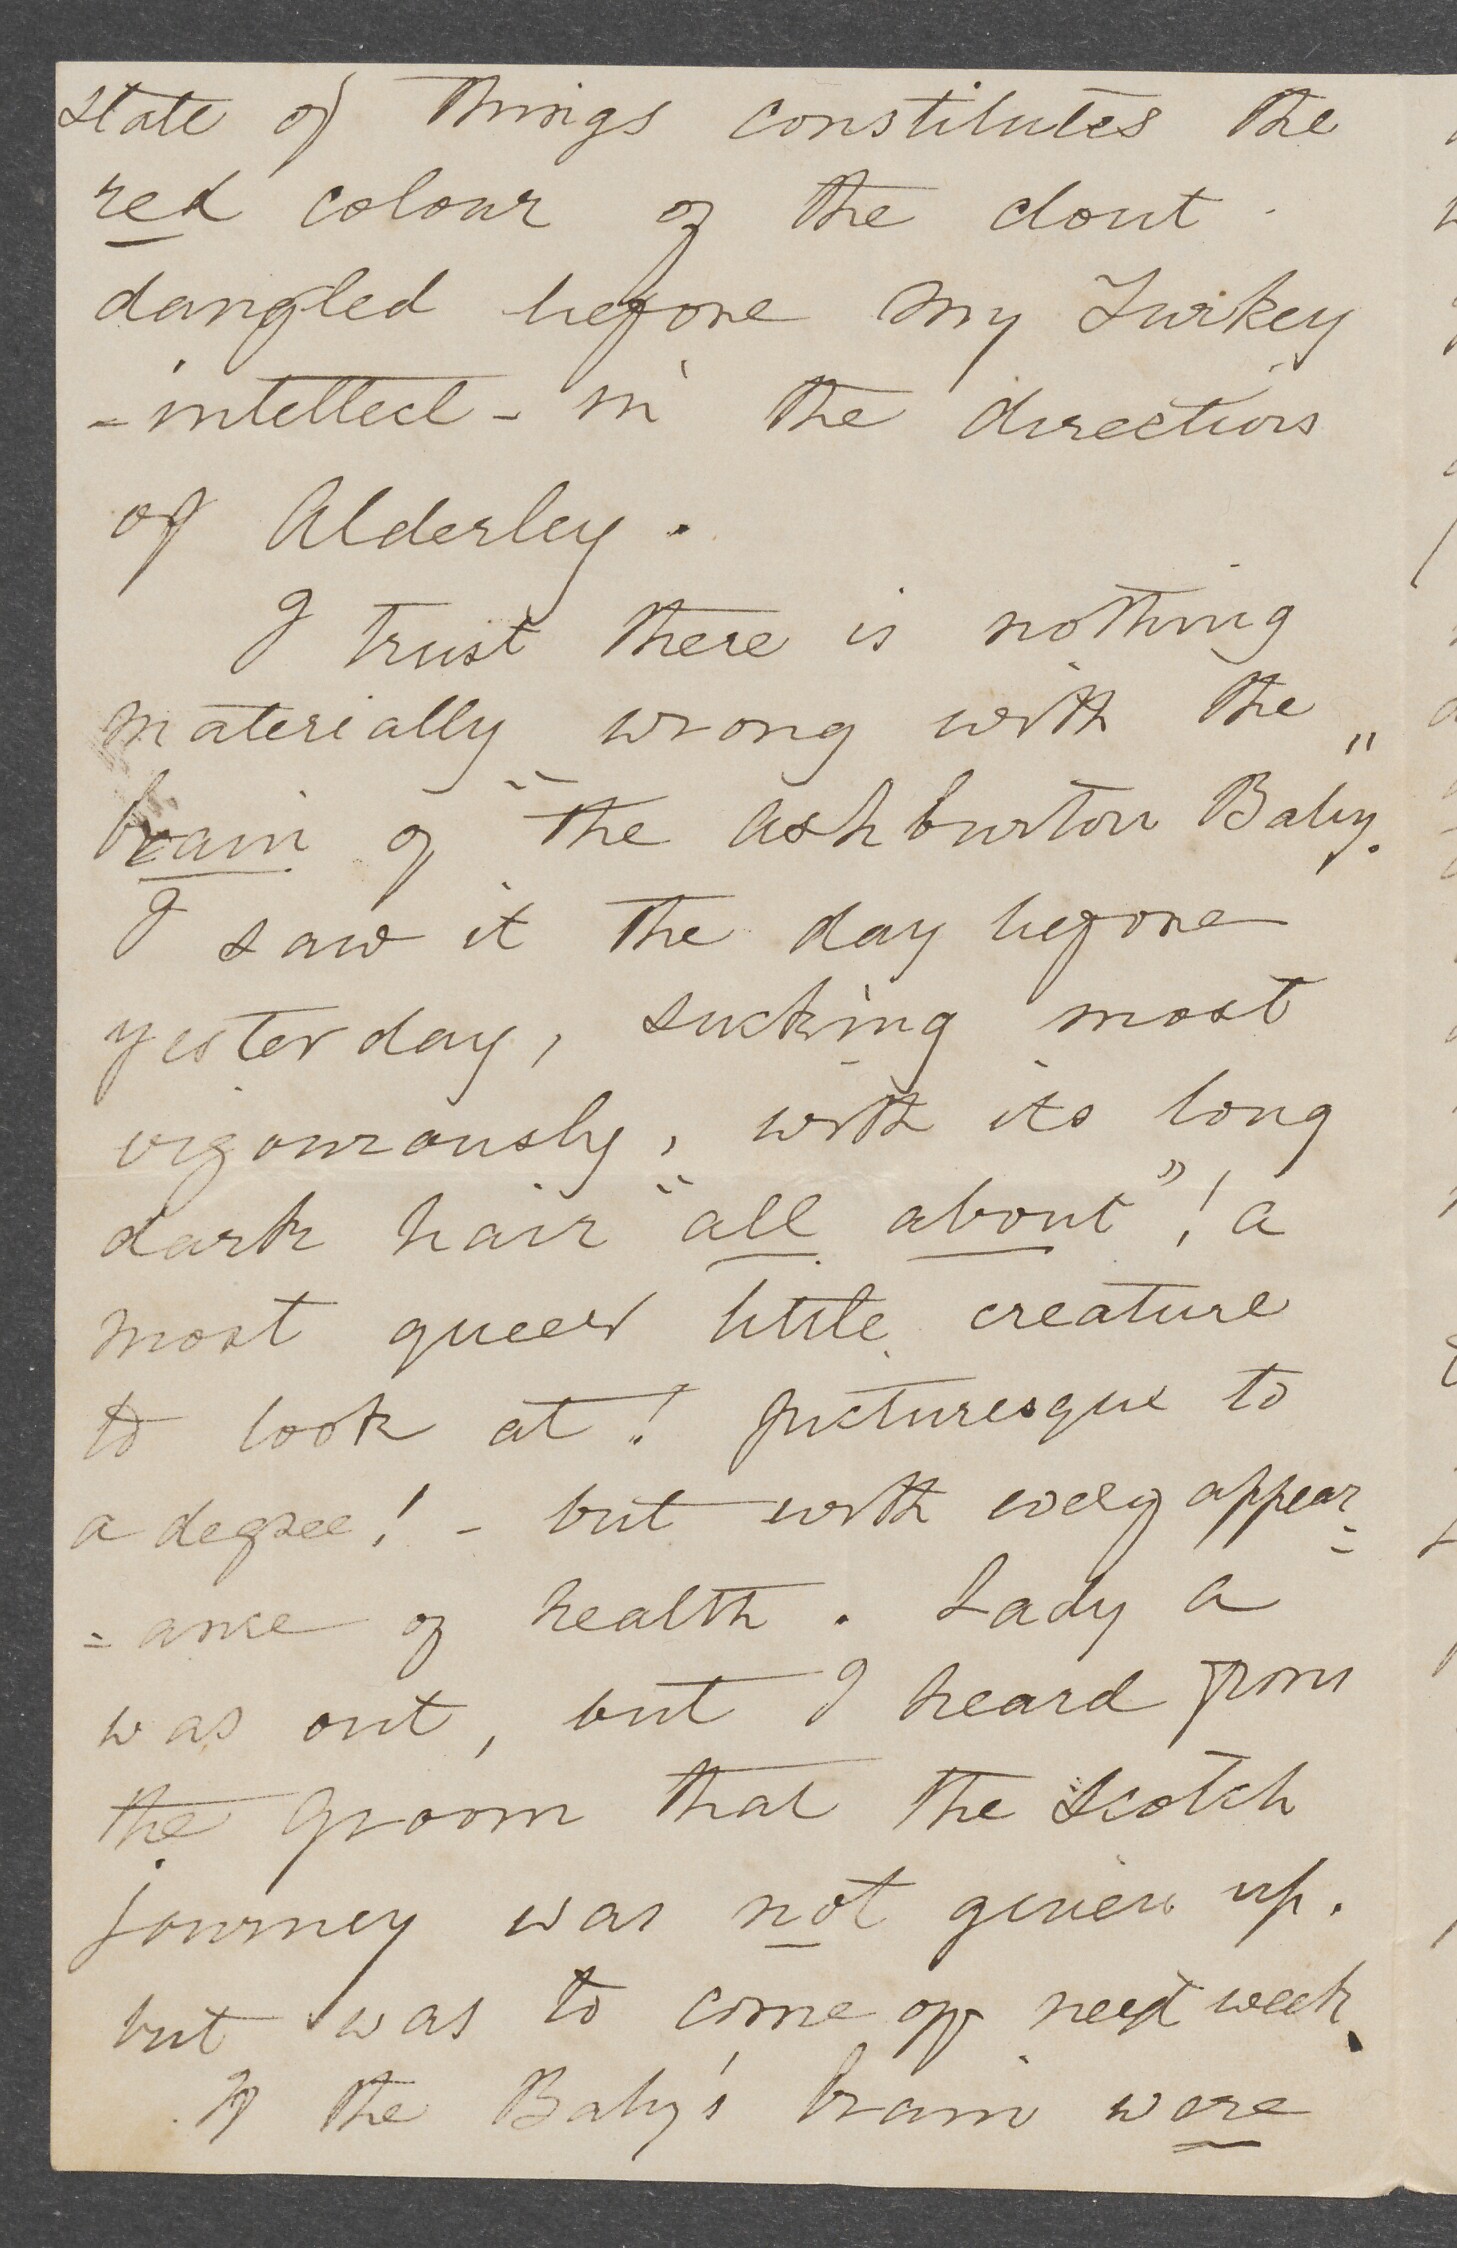 state of things constitutes the
red colour of the clout
dangled before my Turkey
-intellect - in the direction
of Alderley.
I trust there is nothing
materially wrong with the "
brain of "the Ashburton Baby.
I saw it the day before
yesterday, sucking most
vigourously, with its long
dark hair "all about"! a
most queer little creature
to look at! picturesque to
a degree! - but with every appear=
=ance of health. Lady A
was out, but I heard from
the Groom that the Scotch
journey was not given up.
but was to come off next week.
If the Baby's brain were